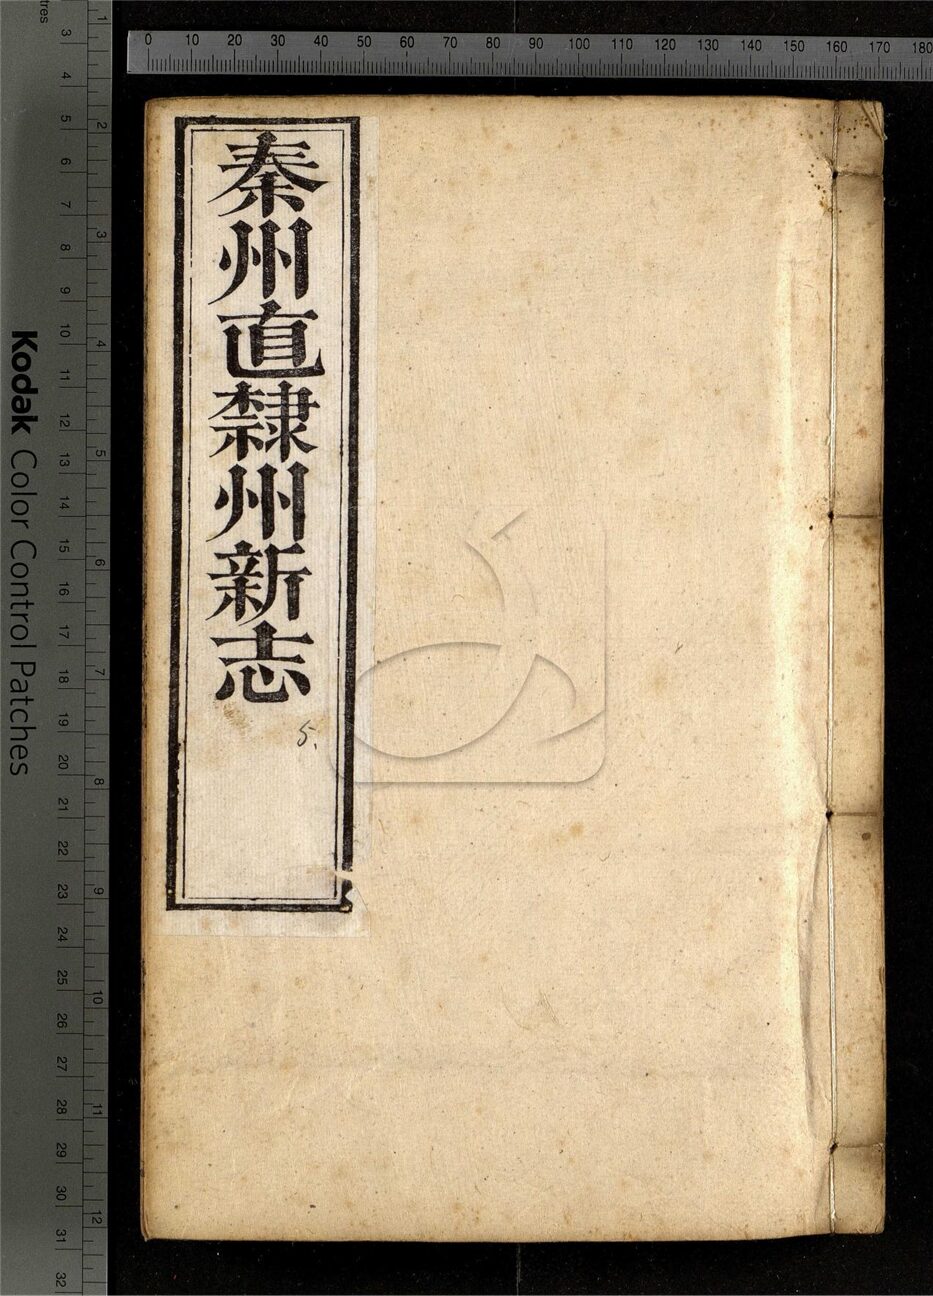 秦州直隸州新志
5.
Kodak Color Control Patches
tres
3 4 5 6 7 8 9 10 11 12 13 14 15 16 17 18 19 20 21 22 23 24 25 26 27 28 29 30 31 32
1 2 3 4 5 6 7 8 9 10 11 12
0 10 20 30 40 50 60 70 80 90 100 110 120 130 140 150 160 170 180